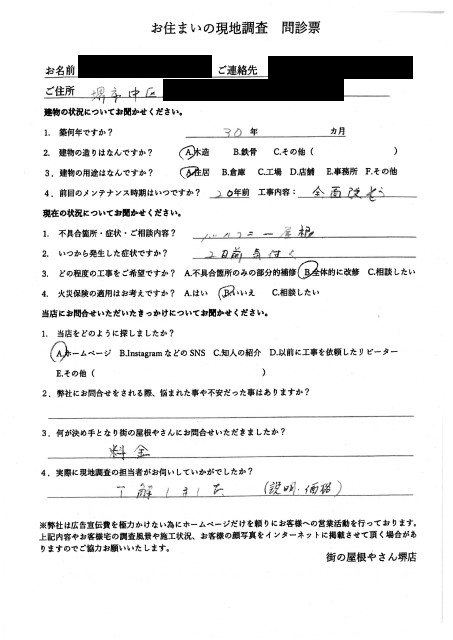 お住まいの現地調査 問診票
お名前 ご連絡先
ご住所 堺市中区
建物の状況についてお聞かせください。
1. 築何年ですか? 30 年 カ月
2. 建物の造りはなんですか? A.木造 B.鉄骨 C.その他 ( )
3. 建物の用途はなんですか? A.住居 B.倉庫 C.工場 D.店舗 E.事務所 F.その他
4. 前回のメンテナンス時期はいつですか? 20年前 工事内容: 全面改そう
現在の状況についてお聞かせください。
1. 不具合箇所・症状・ご相談内容? バルコニー屋根
2. いつから発生した症状ですか? 2日前気付く
3. どの程度の工事をご希望ですか? A.不具合箇所のみの部分的補修 B.全体的に改修 C.相談したい
4. 火災保険の適用はお考えですか? A.はい B.いいえ C.相談したい
当店にお問合せいただいたきっかけについてお聞かせください。
1. 当店をどのように探しましたか?
A.ホームページ B.InstagramなどのSNS C.知人の紹介 D.以前に工事を依頼したリピーター
E.その他 ( )
2. 弊社にお問合せをされる際、悩まれた事や不安だった事はありますか?
3. 何が決め手となり街の屋根やさんにお問合せいただきましたか?
料金
4. 実際に現地調査の担当者がお伺いしていかがでしたか?
了解しました (説明・価格)
※弊社は広告宣伝費を極力かけない為にホームページだけを頼りにお客様への営業活動を行っております。
上記内容やお客様宅の調査風景や施工状況、お客様の顔写真をインターネットに掲載させて頂く場合があ
りますのでご協力お願いいたします。
街の屋根やさん堺店